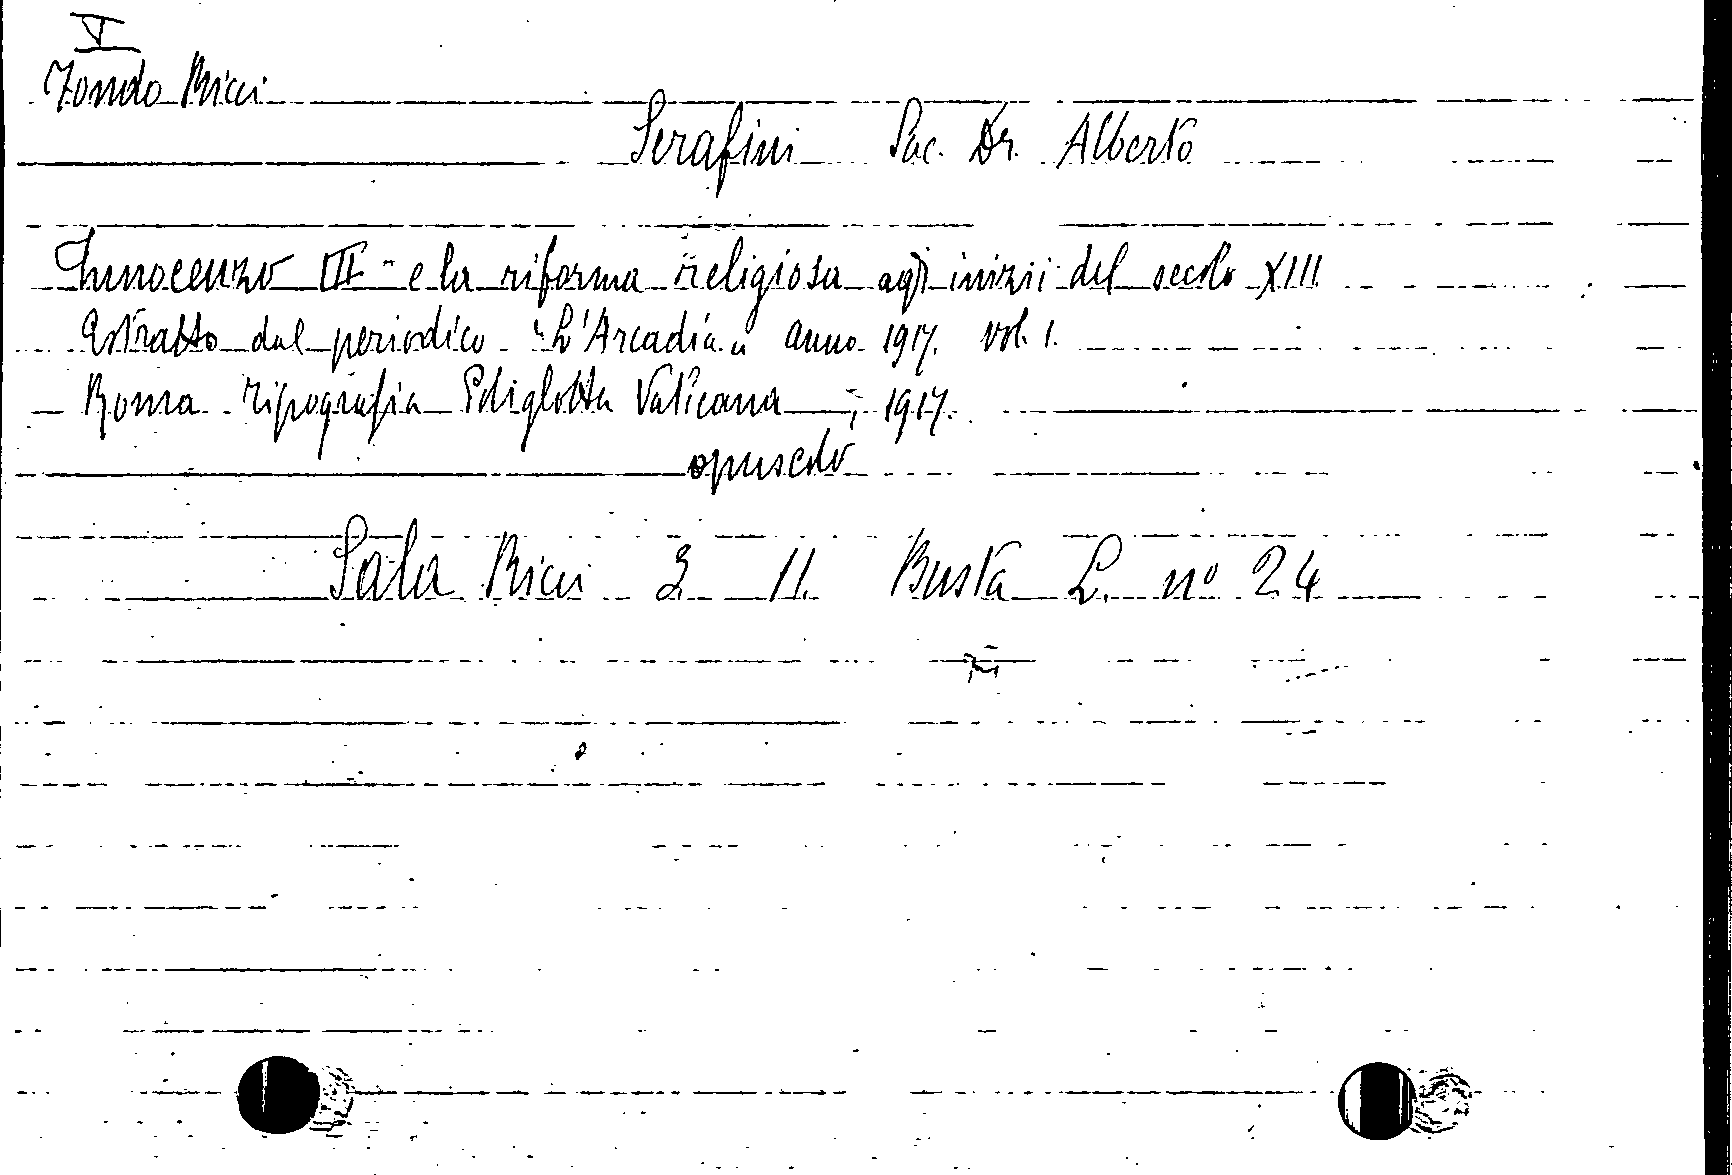 V
Fondo Ricci
Serafini Sac. Dr. Alberto
Innocenzo III e la riforma religiosa agli inizii del secolo XIII
Estratto dal periodico "L'Arcadia" anno 1917. vol. 1.
Roma Tipografia Poliglotta Vaticana, 1917.
opuscolo
Sala Ricci 3 11. Busta L. nº 24